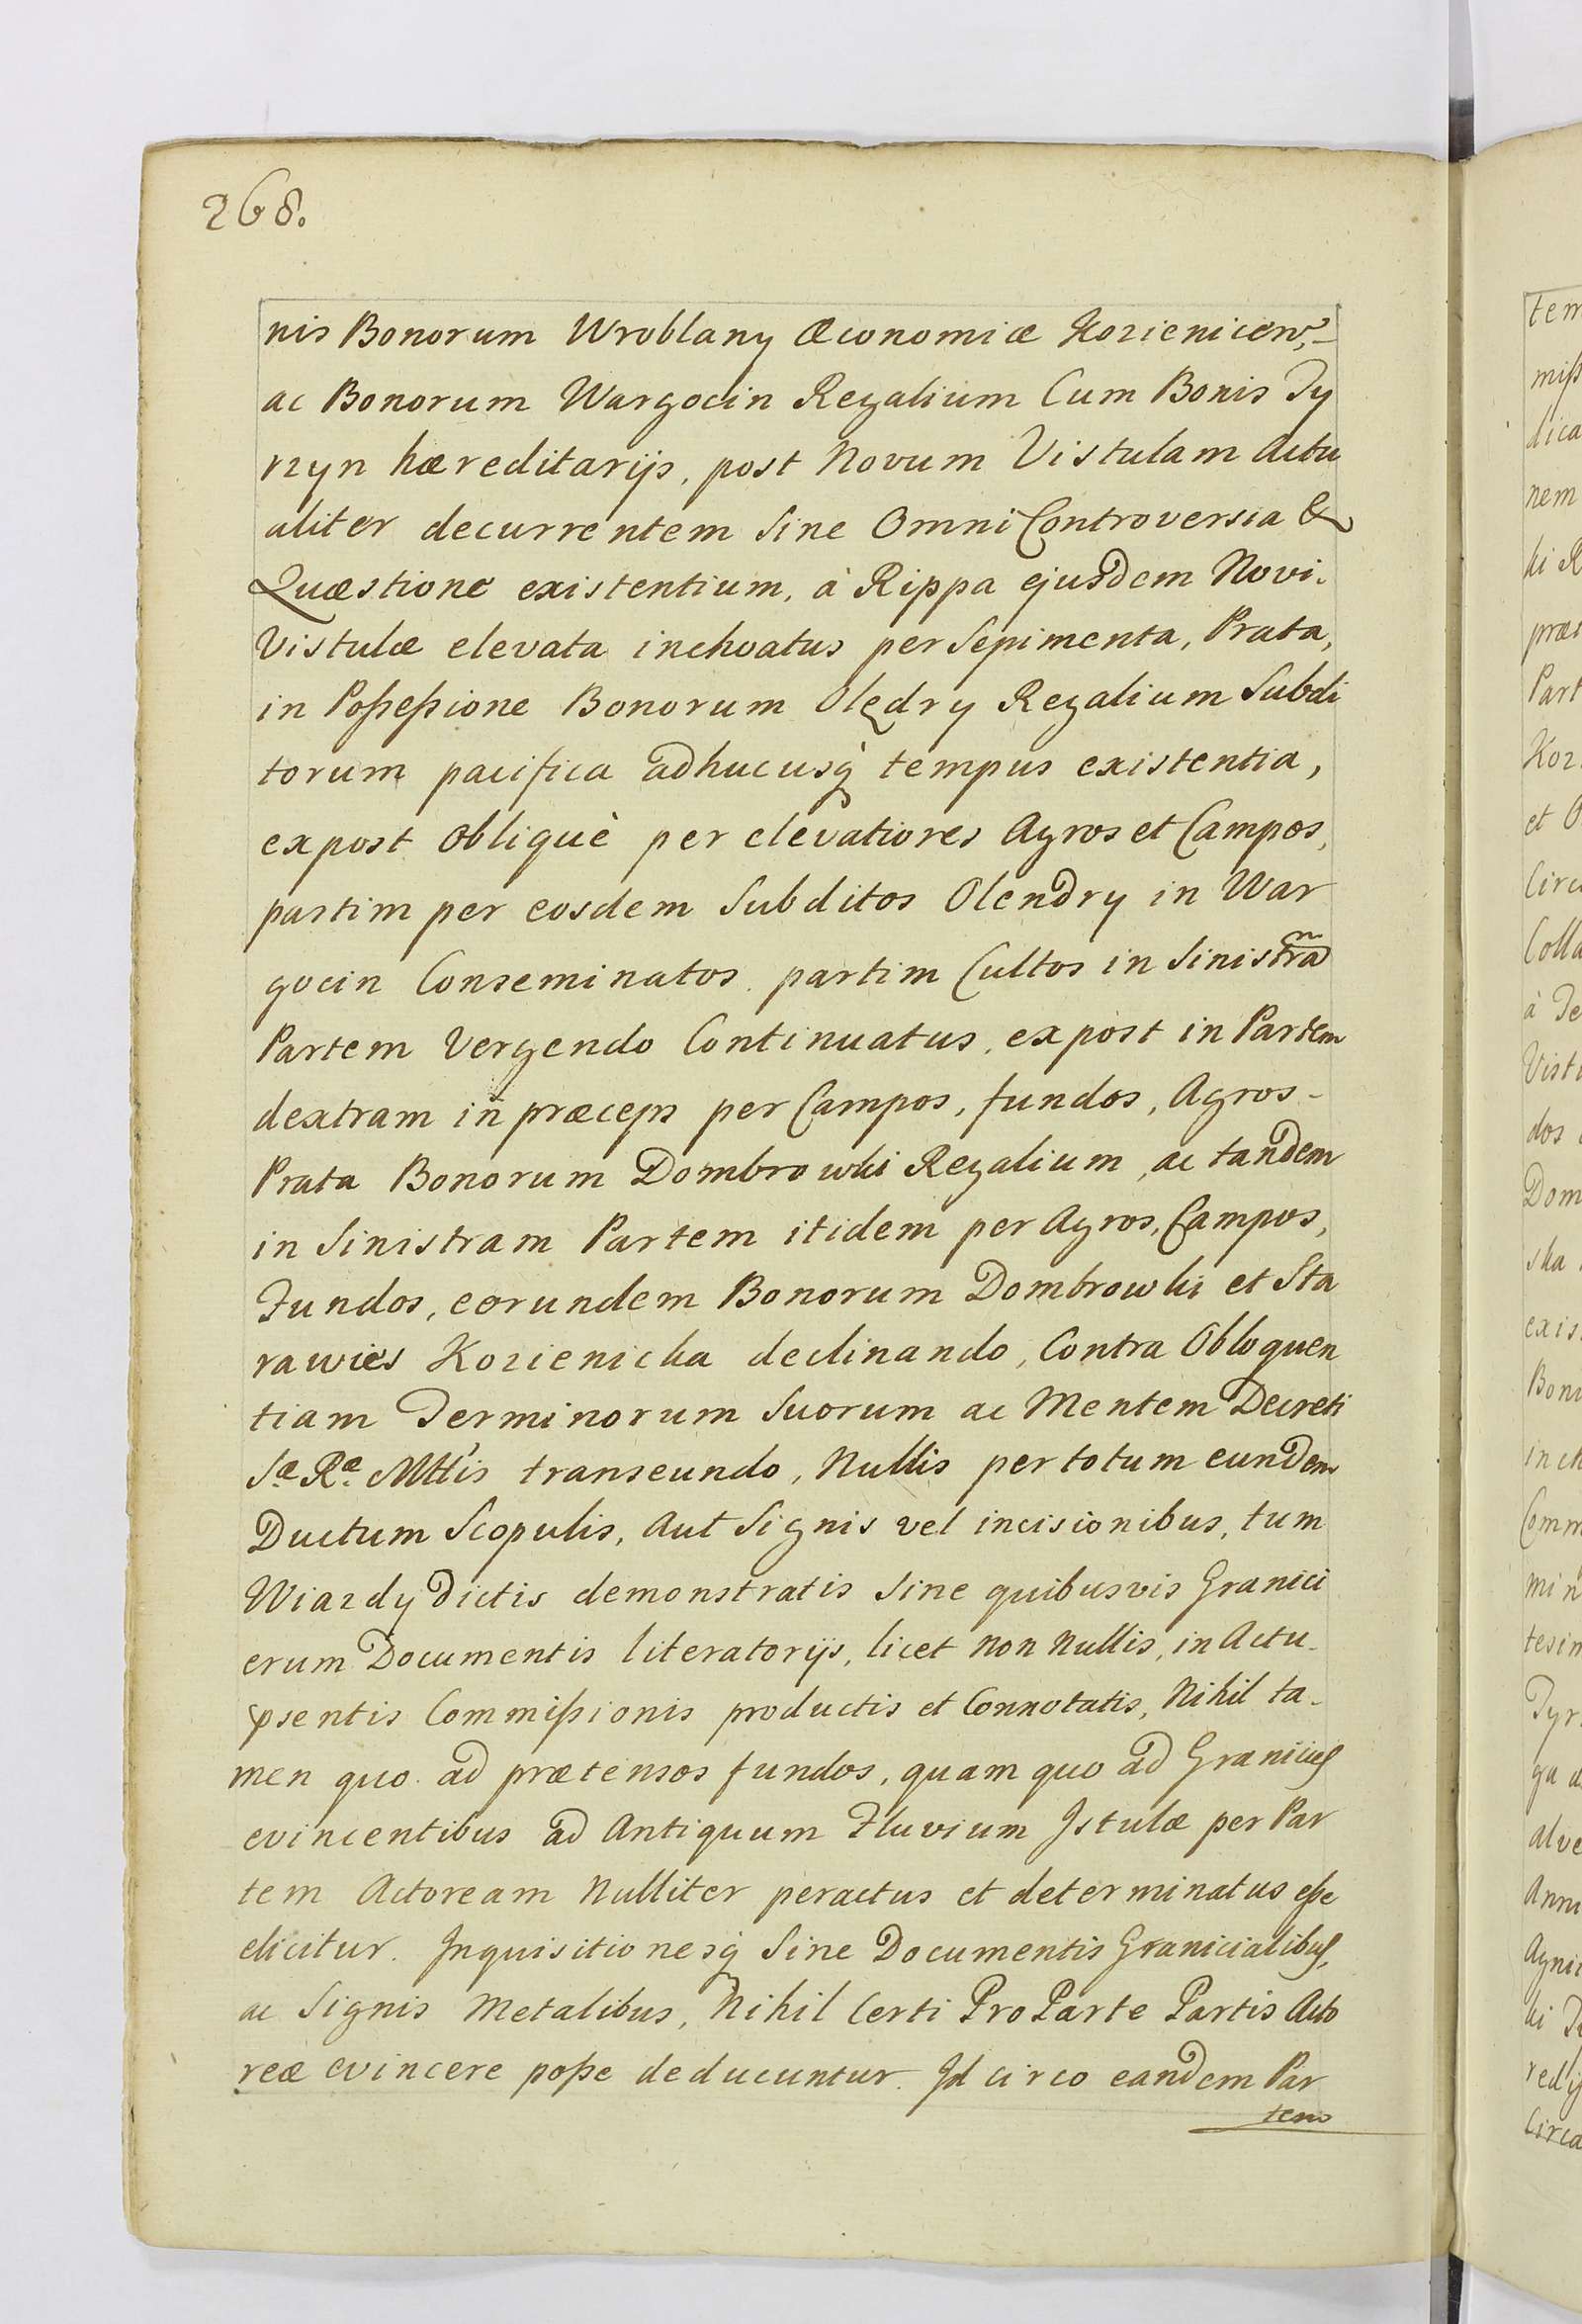 268.
nis Bonorum Wroblany Œconomiæ Kozienicen̄,-
ac Bonorum Wargocin Regalium Cum Bonis Ty
rzyn hæreditarijs, post Novum Vistulam Actu
aliter decurrentem Sine Omni Controversia &
Quæstione existentium, à Rippa ejusdem Novi.
Vistulæ elevata inchoatus per Sepimenta, Prata,
in Poßeßione Bonorum Olędry Regalium Subdi
torum pacifica adhucusq̀ tempus existentia,
expost Obliquè per elevatiores Agros et Campos,
partim per eosdem Subditos Olendry in War
gocin Conseminatos. partim Cultos in Sinistram
Partem Vergendo Continuatus, expost in Partem
dextram in præceps per Campos, fundos, Agros-
Prata Bonorum Dombrowki Regalium, ac tandem
in Sinistram Partem itidem per Agros, Campos,
Fundos, eorundem Bonorum Dombrowki et Sta
rawies Kozienicka declinando, Contra Obloquen
tiam Terminorum Suorum ac Mentem Decreti
Sæ Ræ Mttis transeundo, Nullis per totum eundem
Ductum Scopulis, Aut Signis vel incisionibus, tum
Wiazdy dictis demonstratis Sine quibusvis Granici
erum Documentis literatorijs, licet Non Nullis, in Actu-
pſentis Commißionis productis et Connotatis, Nihil ta-
men quo ad prætensos fundos, quam quo ad Granicies
evincentibus ad Antiquum Fluvium Istulæ per Par
tem Actoream Nulliter peractus et determinatus eße
elicitur. Inquisitionesq̀ Sine Documentis Granicialibus,
ac Signis Metalibus, Nihil Certi Pro Parte Partis Acto
reæ evincere poße deducuntur. Id circo eandem Par
tem
tem
miß
dica
nem
ki R
præ
Part
Koz
et O
Circ
Colla
à Te
Vist
dos
Dom
ska
exis
Bon
inch
Comm
min
tesim
Tyr
ga
alve
Ann
Agni
ki
redij
Circa